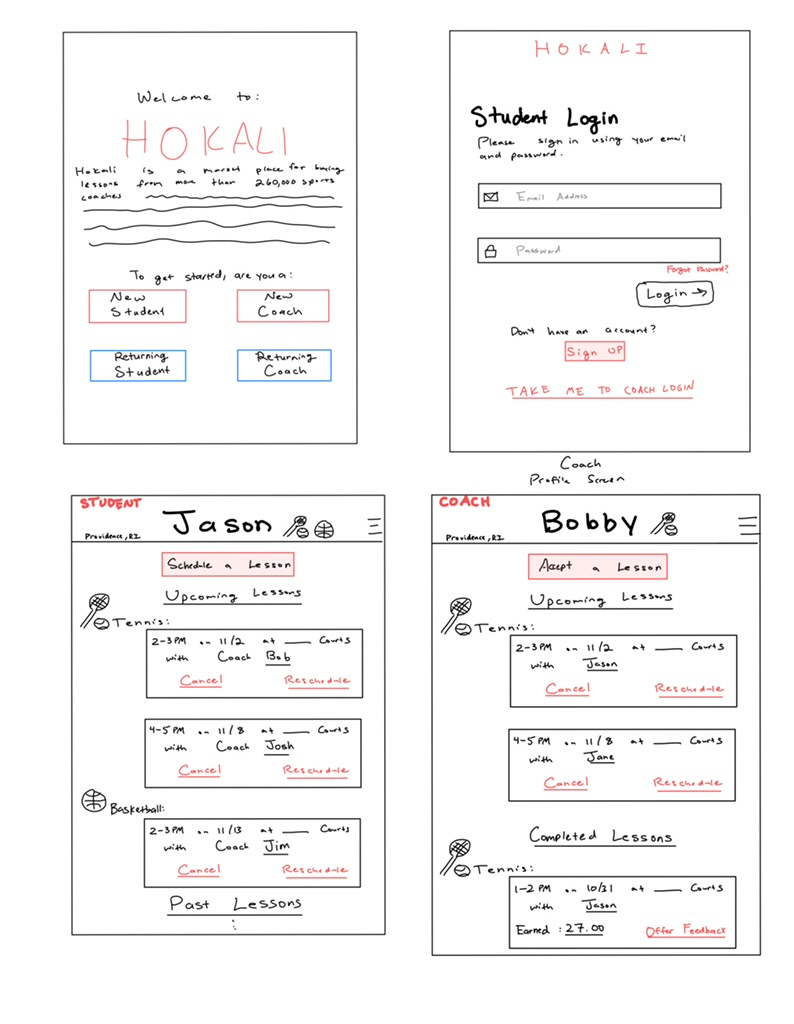 Welcome to:
HOKALI
Hokali is a market place for buying
lessons from more than 260,000 sports
coaches
To get started, are you a:
New Student
New Coach
Returning Student
Returning Coach
HOKALI
Student Login
Please sign in using your email
and password.
Email Address
Password
Forgot Password?
Login →
Don't have an account?
Sign UP
TAKE ME TO COACH LOGIN
STUDENT
Jason
Providence, RI
Schedule a Lesson
Upcoming Lessons
Tennis:
2-3 PM on 11/2 at ___ Courts
with Coach Bob
Cancel Reschedule
4-5 PM on 11/8 at ___ Courts
with Coach Josh
Cancel Reschedule
Basketball:
2-3 PM on 11/13 at ___ Courts
with Coach Jim
Cancel Reschedule
Past Lessons
Coach
Profile Screen
COACH
Bobby
Providence, RI
Accept a Lesson
Upcoming Lessons
Tennis:
2-3 PM on 11/2 at ___ Courts
with Jason
Cancel Reschedule
4-5 PM on 11/8 at ___ Courts
with Jane
Cancel Reschedule
Completed Lessons
Tennis:
1-2 PM on 10/31 at ___ Courts
with Jason
Earned: 27.00 Offer Feedback